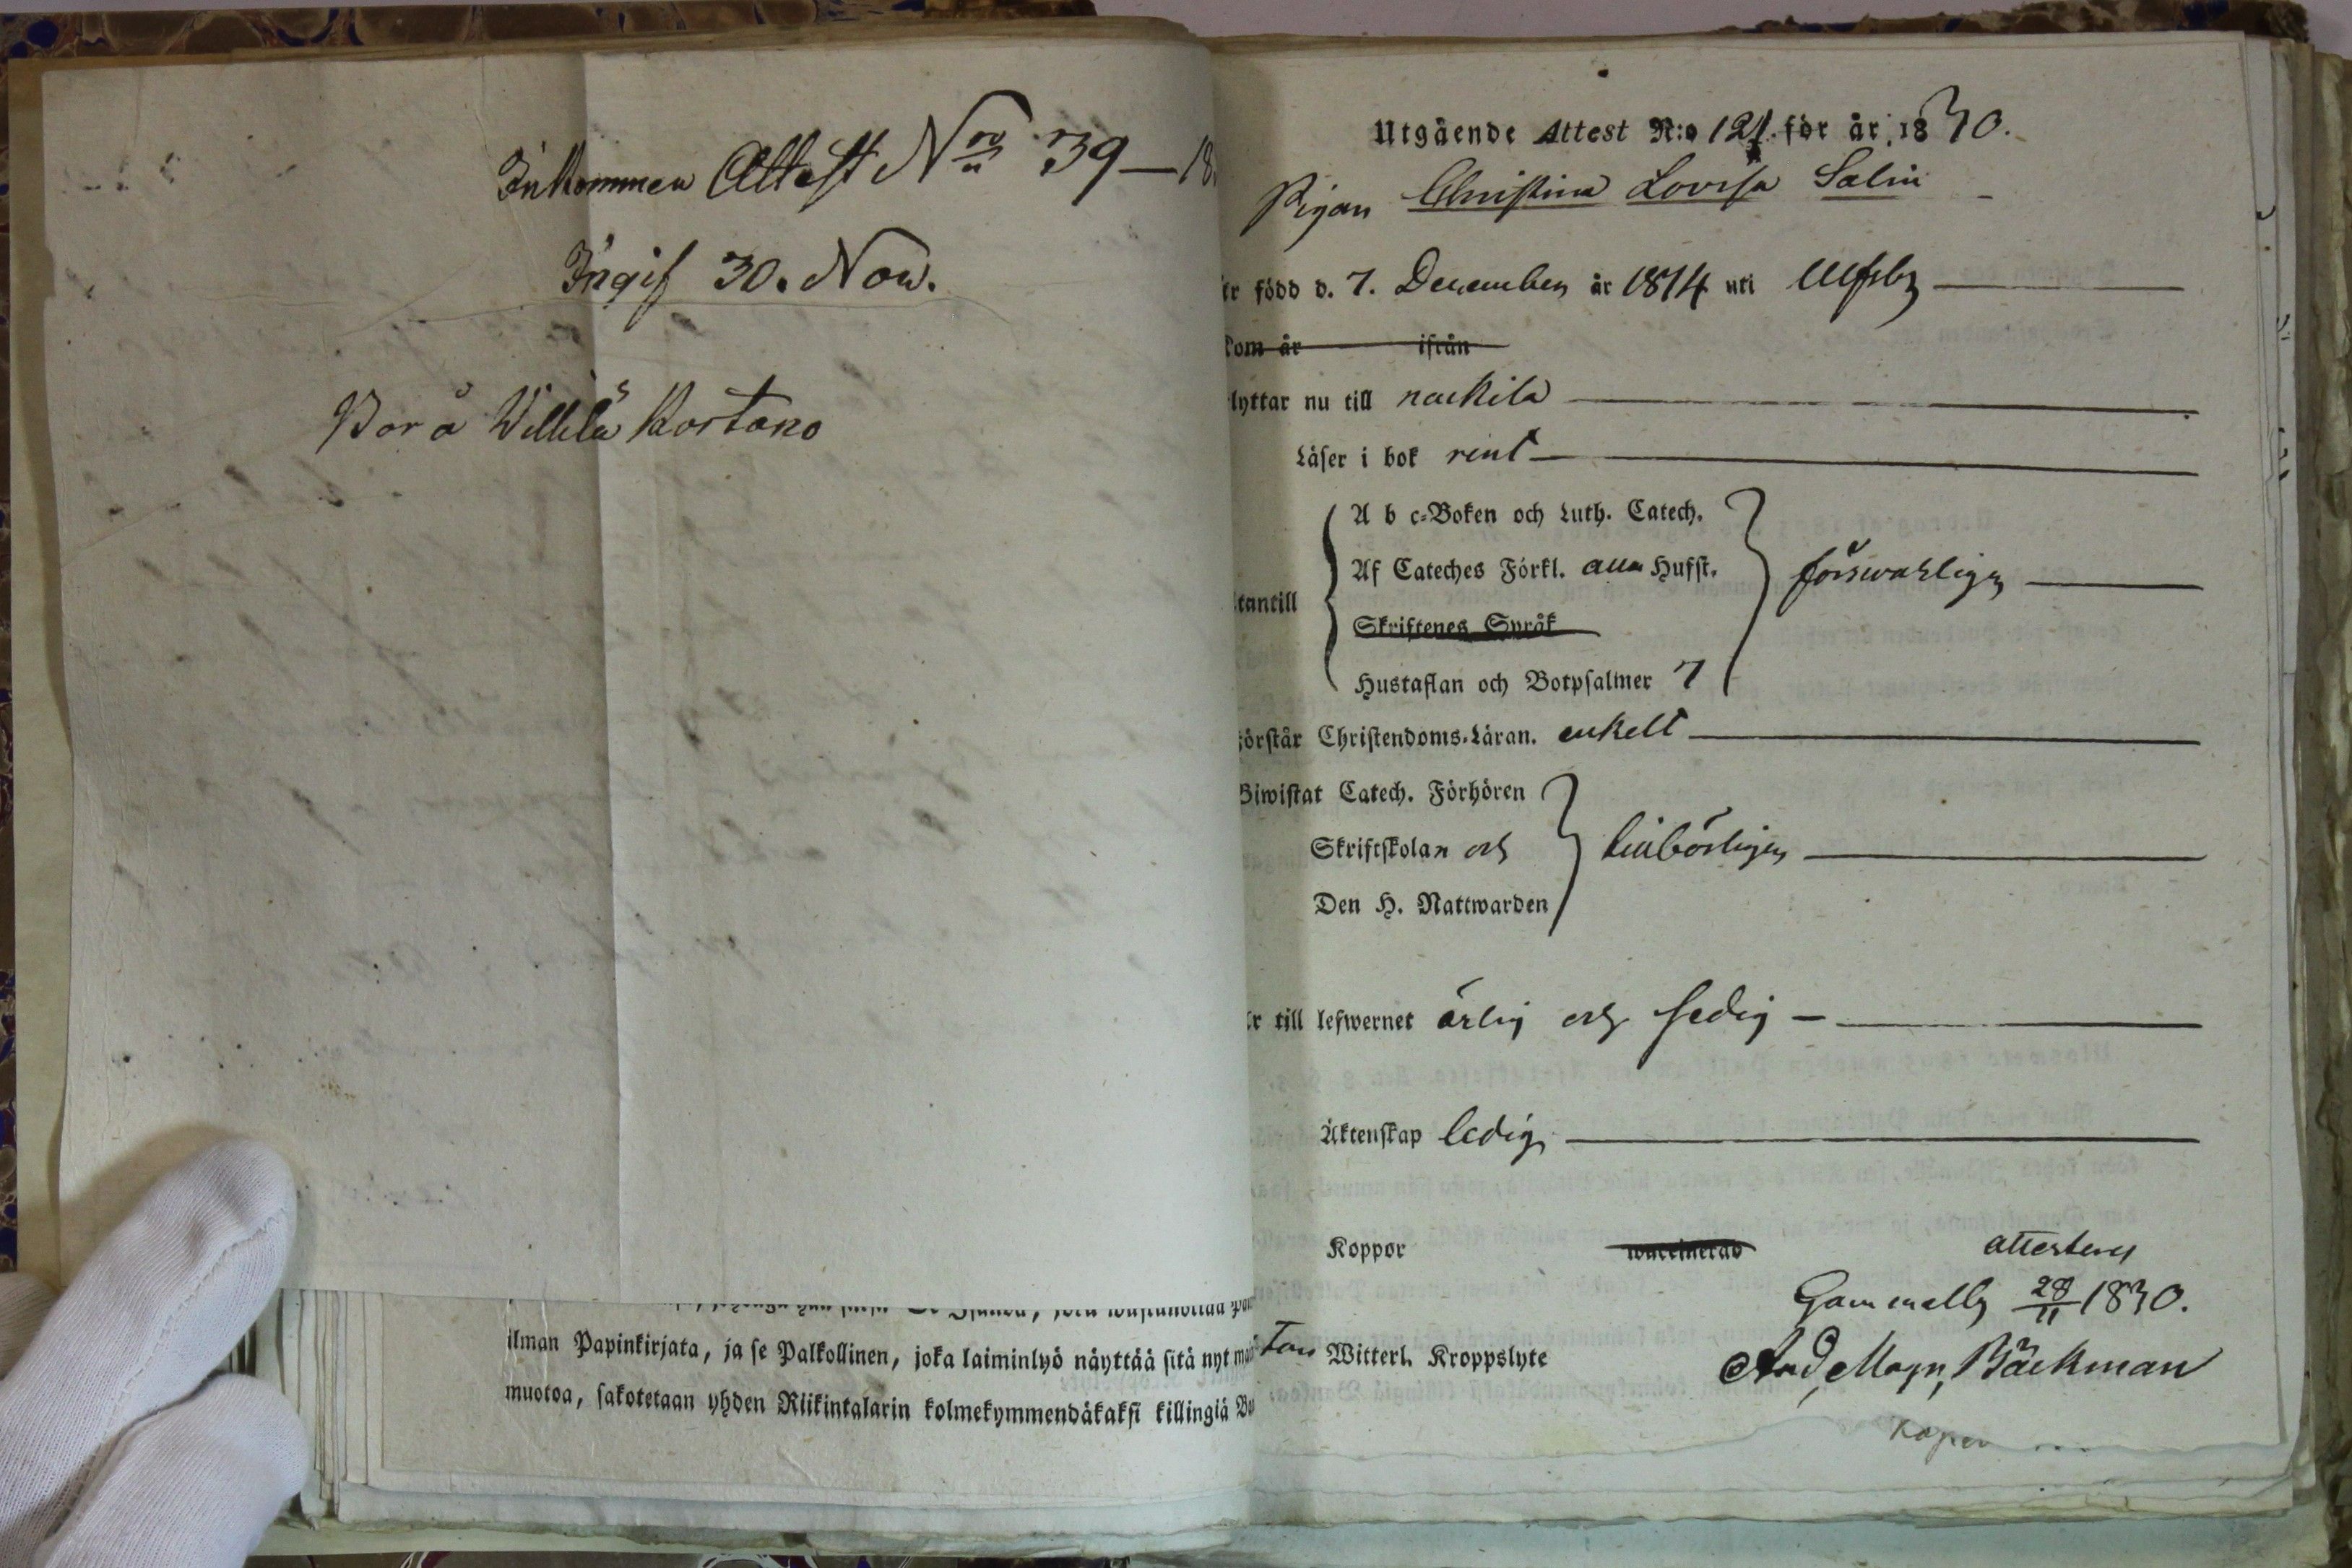 Inkommen Attest Nro 39 — 18
Ingif 30. Now.
Bor å Willilä Kortano
ilman Papinkirjata, ja se Palkollinen, joka laiminlyö näyttää sitä nyt
muotoa, sakotetaan yhden Riikintalarin kolmekymmendäkaksi killingiä
Utgående Attest N:o 121. för år 1830.
Pigan Christina Lovisa Salin
är född d. 7. December år 1814 uti Ulfsby
kom år ifrån
lyttar nu till nackila
Läser i bok rent
A b c-Boken och Luth. Catech.
Af Cateches Förkl. alla Hufst.
försvarligen
tantill
Skriftenes Språk
Hustaflan och Botpsalmer 7
örstår Christendoms-Läran. enkelt
Biwistat Catech. Förhören
Skriftskolan och
tillbörligen
Den H. Nattwarden
r till lefwernet ärlig och sedig
Äktenskap ledig
Koppor waccinerad attesterar
Gammelby 28/11 1830.
Witterl. Kroppslyte And. Magn. Bäckman